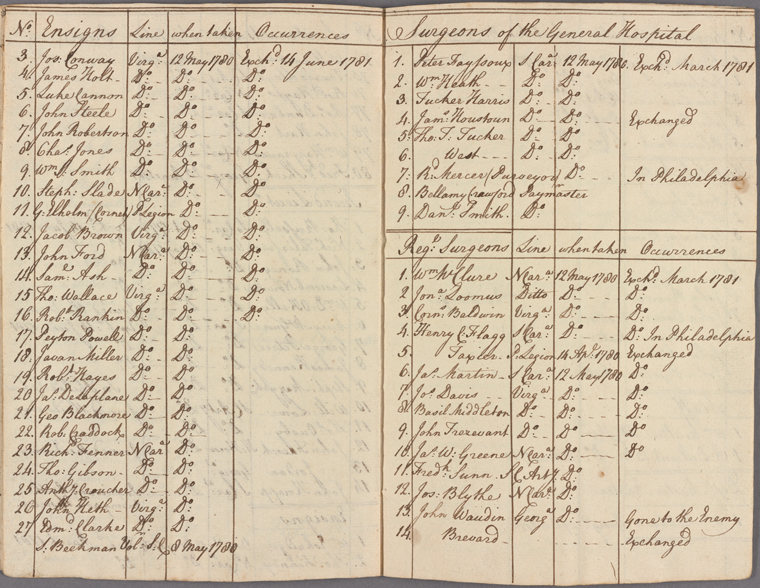 No. Ensigns Line when taken Occurrences
3. Jos: Conway Virga. 12 May 1780 Exchd. 14 June 1781
4. James Holt Do. Do. Do.
5. Luke Cannon Do. Do. Do.
6. John Steele Do. Do. Do.
7. John Robertson Do. Do. Do.
8. Chas. Jones Do. Do. Do.
9. Wm. Smith Do. Do. Do.
10. Steph: Slade N Cara. Do. Do.
11. G: Elholm/Cornet P Legion Do. Do.
12. Jacob Brown Virga. Do. Do.
13. John Ford N Cara. Do. Do.
14. Saml. Ash Do. Do. Do.
15 Tho: Wallace Virga. Do. Do.
16 Robt. Rankin Do. Do. Do.
17. Peyton Powell Do. Do.
18. Javan Miller Do. Do.
19. Robt. Hayes Do. Do.
20 Jas. Delaplane Do. Do.
21. Geo Blackmore Do. Do.
22. Rob. Craddock Do. Do.
23. Richd. Fenner N Cara. Do.
24. Tho: Gibson Do. Do.
25 Anthy. Croucher Do. Do.
26 John Heth Virga. Do.
27 Edmd. Clarke Do. Do.
S: Beekman Vol: S: C. 8 May 1780
Surgeons of the General Hospital
1. Peter Fayssoux S Cara. 12 May 1780. Exchd. March 1781
2. Wm. Heath Do. Do.
3. Tucker Harris Do. Do.
4. Jams. Houstoun Do. Do. Exchanged
5. Tho: T. Tucker Do. Do.
6. West Do. Do.
7. Rd. Mercer/Purveyor Do. In Philadelphia
8. Bellamy Crawford Paymaster
9. Danl. Smith. Do.
Regl. Surgeons Line when taken Occurrences
1. Wm. McClure N Cara. 12 May 1780 Exchd. March 1781
2 Jona. Loomus Ditto Do. Do.
3. Corns. Baldwin Virga. Do. Do.
4. Henry C Flagg S Cara. Do. Do. In Philadelphia
5. P. Legion 14 Apl. 1780 Exchanged
6. Jas. Martin S Cara. 12 May 1780 Do.
7. Jos. Davis Virga. Do. Do.
8. Basil Middleton Do. Do. Do.
9. John Trezevant Do. Do. Do
10. Jas. W: Greene N Cara. Do. Do
11. Fredk. Sunn S C Arty. Do.
12. Jos: Blythe N Cara. Do.
13. John Waudin Georga. Do. Gone to the Enemy
14. Brevard Exchanged